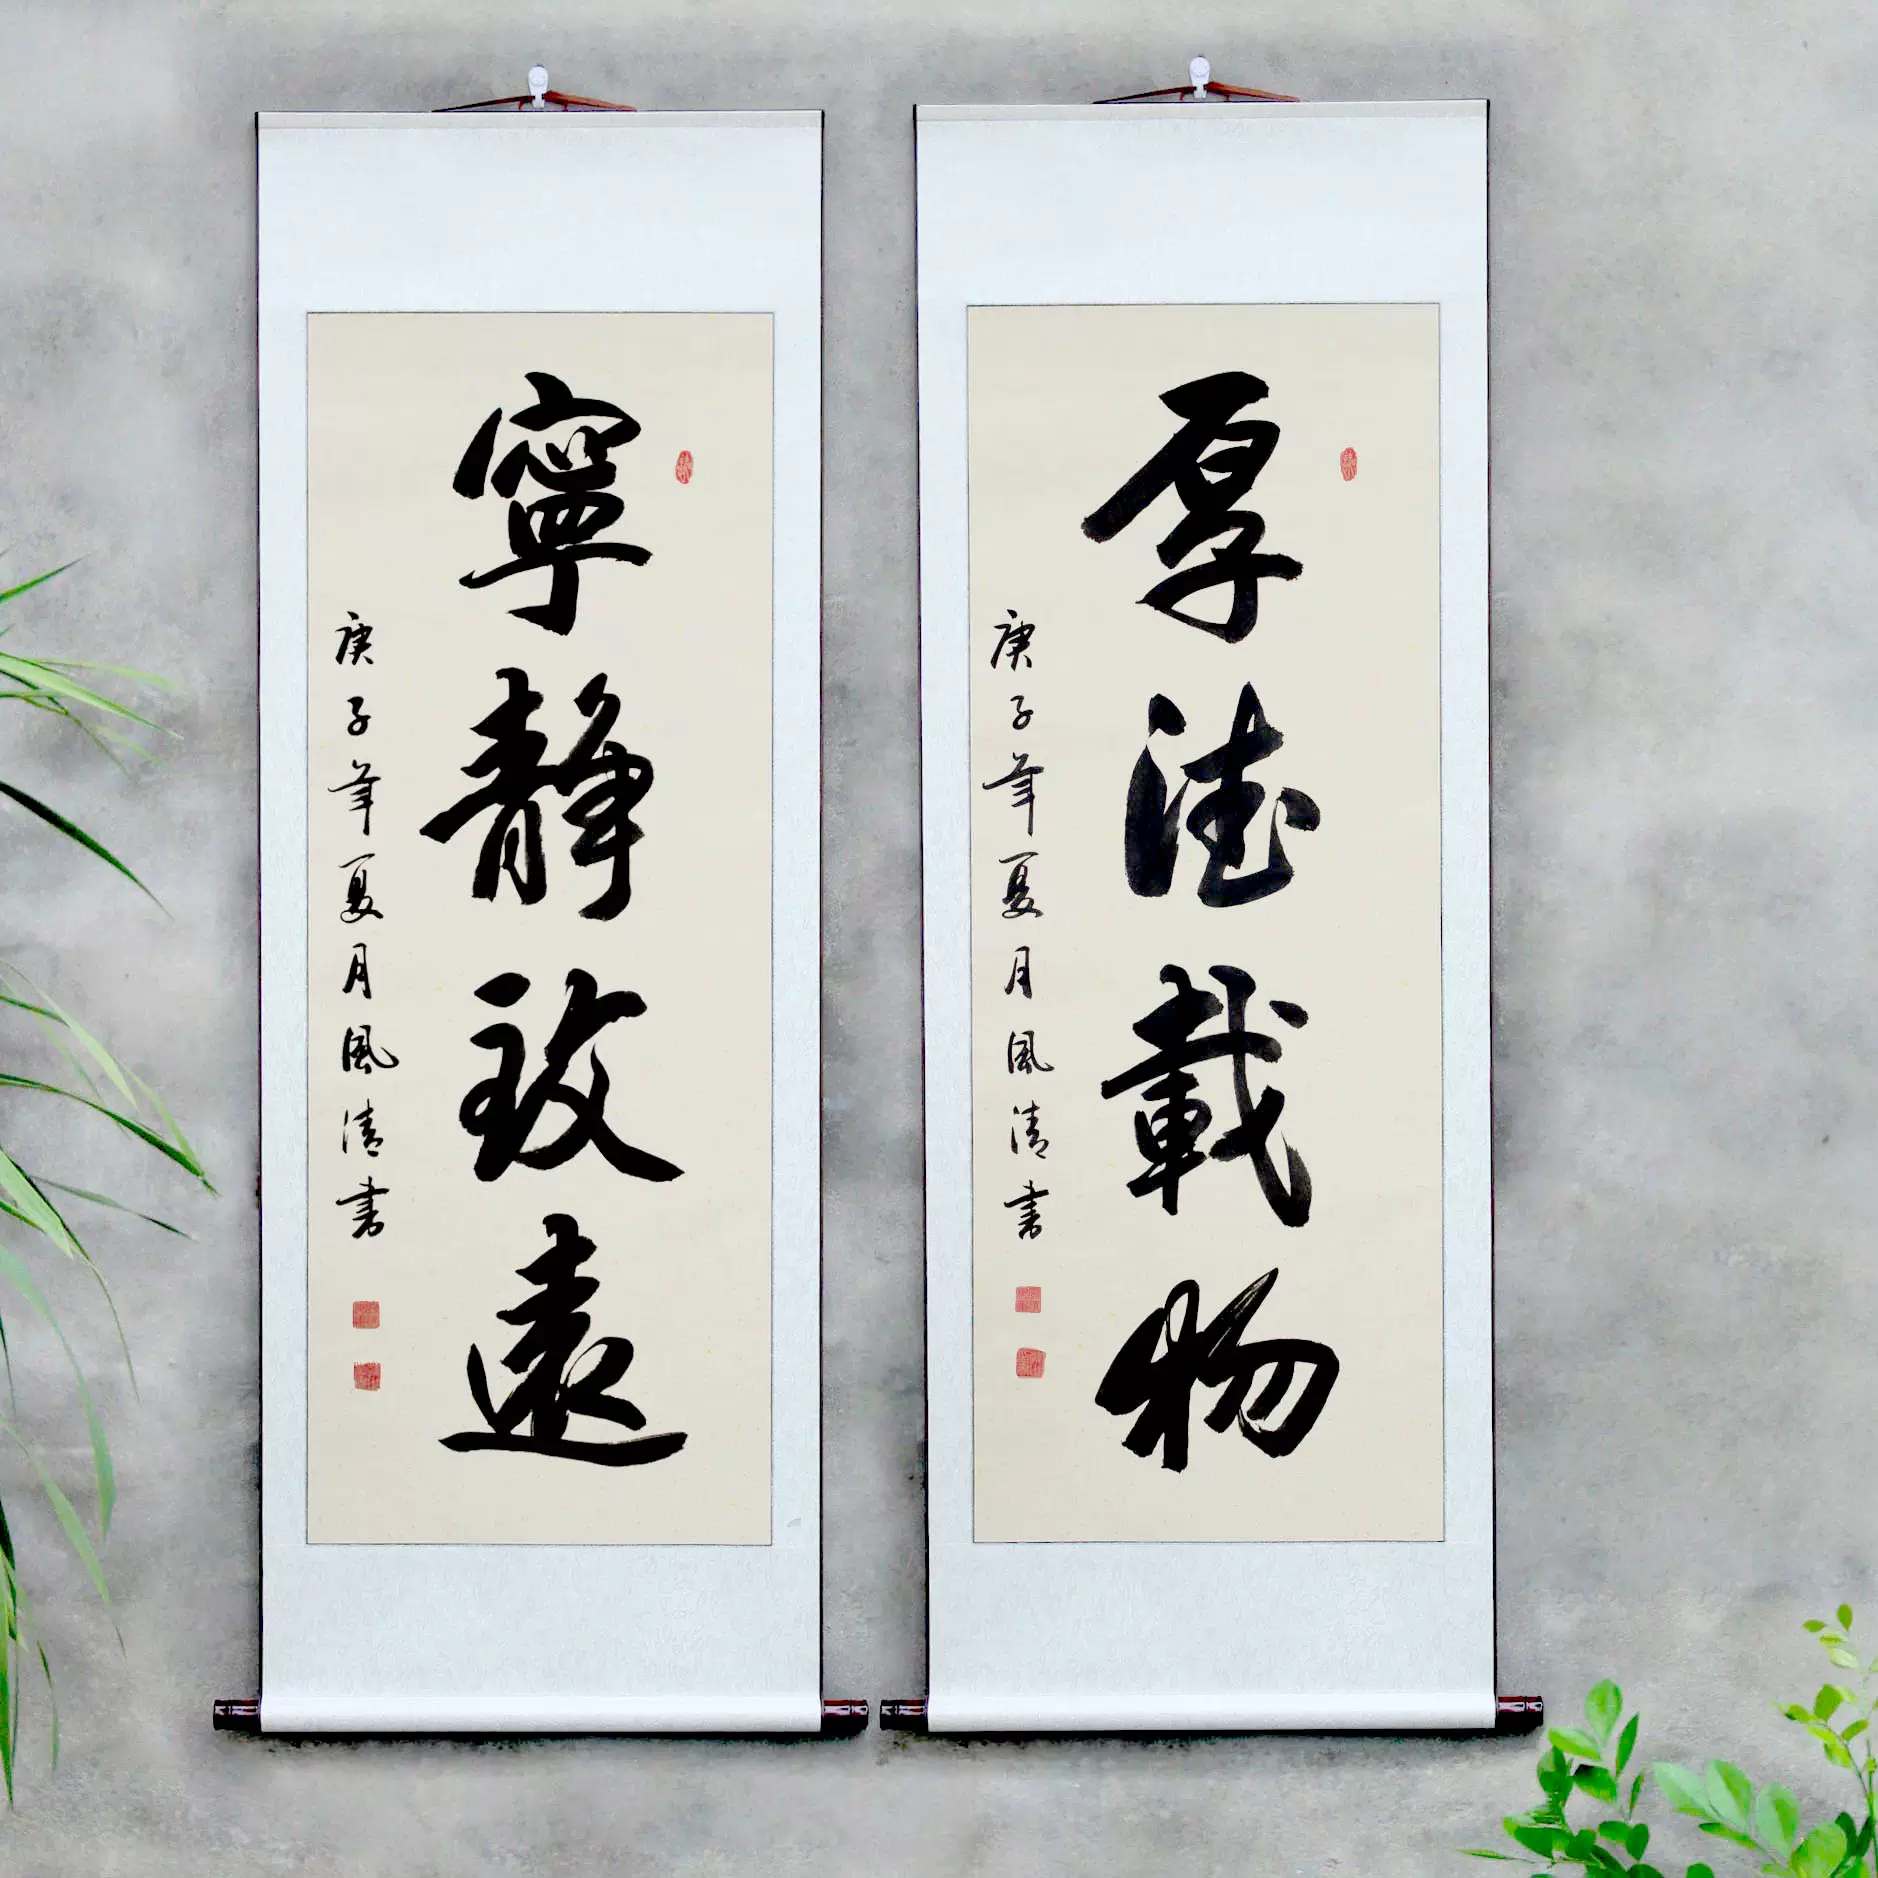 厚德載物
庚子年夏月風清书
寧靜致遠
庚子年夏月風清书